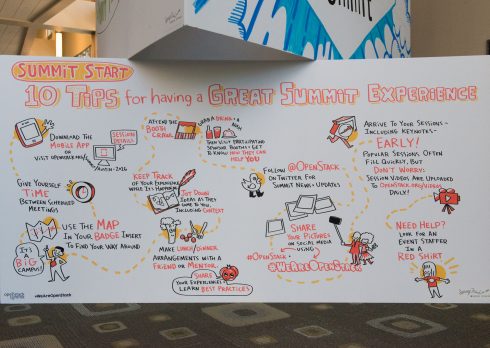 SUMMIT START
10 TIPS for having a GREAT SUMMIT EXPERIENCE
DOWNLOAD THE
MOBILE APP
OR
SESSION
DETAILS
AUSTIN 2016
GIVE YOURSELF
TIME
BETWEEN SCHEDULED
MEETINGS
USE THE MAP
IN YOUR BADGE INSERT
TO FIND YOUR WAY AROUND
IT'S A
BIG
CAMPUS!
ATTEND THE
BOOTH
CRAWL
GRAB A DRINK +
A NOSH
THEN VISIT PARTICIPATING
SPONSOR BOOTHS + GET
TO KNOW HOW THEY CAN
HELP YOU
KEEP TRACK
OF YOUR EXPERIENCE
WHILE IT'S HAPPENING
JOT DOWN
IDEAS AS THEY
COME TO YOU,
INCLUDING CONTEXT
MAKE LUNCH/DINNER
ARRANGEMENTS WITH A
FRIEND OR MENTOR
SHARE
YOUR EXPERIENCES +
LEARN BEST PRACTICES
FOLLOW @OPENSTACK
ON TWITTER FOR
SUMMIT NEWS + UPDATES
SHARE
YOUR PICTURES
ON SOCIAL MEDIA
USING
#OPENSTACK
#WEAREOPENSTACK
ARRIVE TO YOUR SESSIONS -
INCLUDING KEYNOTES -
EARLY!
POPULAR SESSIONS OFTEN
FILL QUICKLY, BUT
DON'T WORRY!
SESSION VIDEOS ARE UPLOADED
TO OPENSTACK.ORG/VIDEOS
DAILY!
NEED HELP?
LOOK FOR AN
EVENT STAFFER
IN A
RED SHIRT
openstack
#WeAreOpenStack